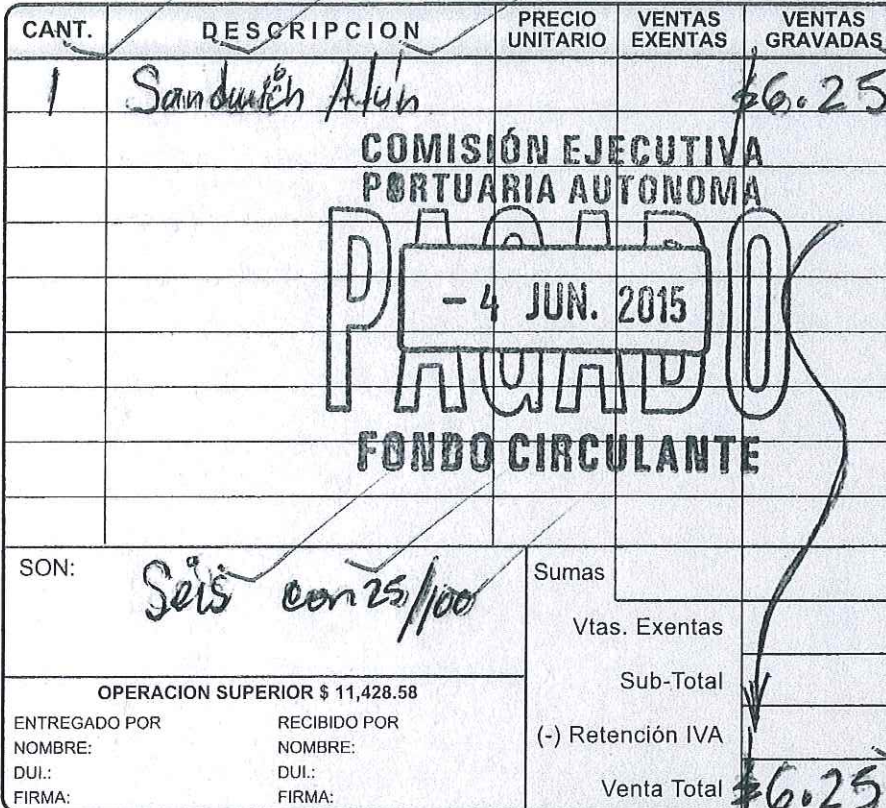 CANT. DESCRIPCION PRECIO UNITARIO VENTAS EXENTAS VENTAS GRAVADAS
1 Sandwich Atún $6.25
COMISIÓN EJECUTIVA
PORTUARIA AUTONOMA
PAGADO
- 4 JUN. 2015
FONDO CIRCULANTE
SON: Seis con 25/100
Sumas
Vtas. Exentas
Sub-Total
(-) Retención IVA
Venta Total $6.25
OPERACION SUPERIOR $ 11,428.58
ENTREGADO POR RECIBIDO POR
NOMBRE: NOMBRE:
DUI.: DUI.:
FIRMA: FIRMA: